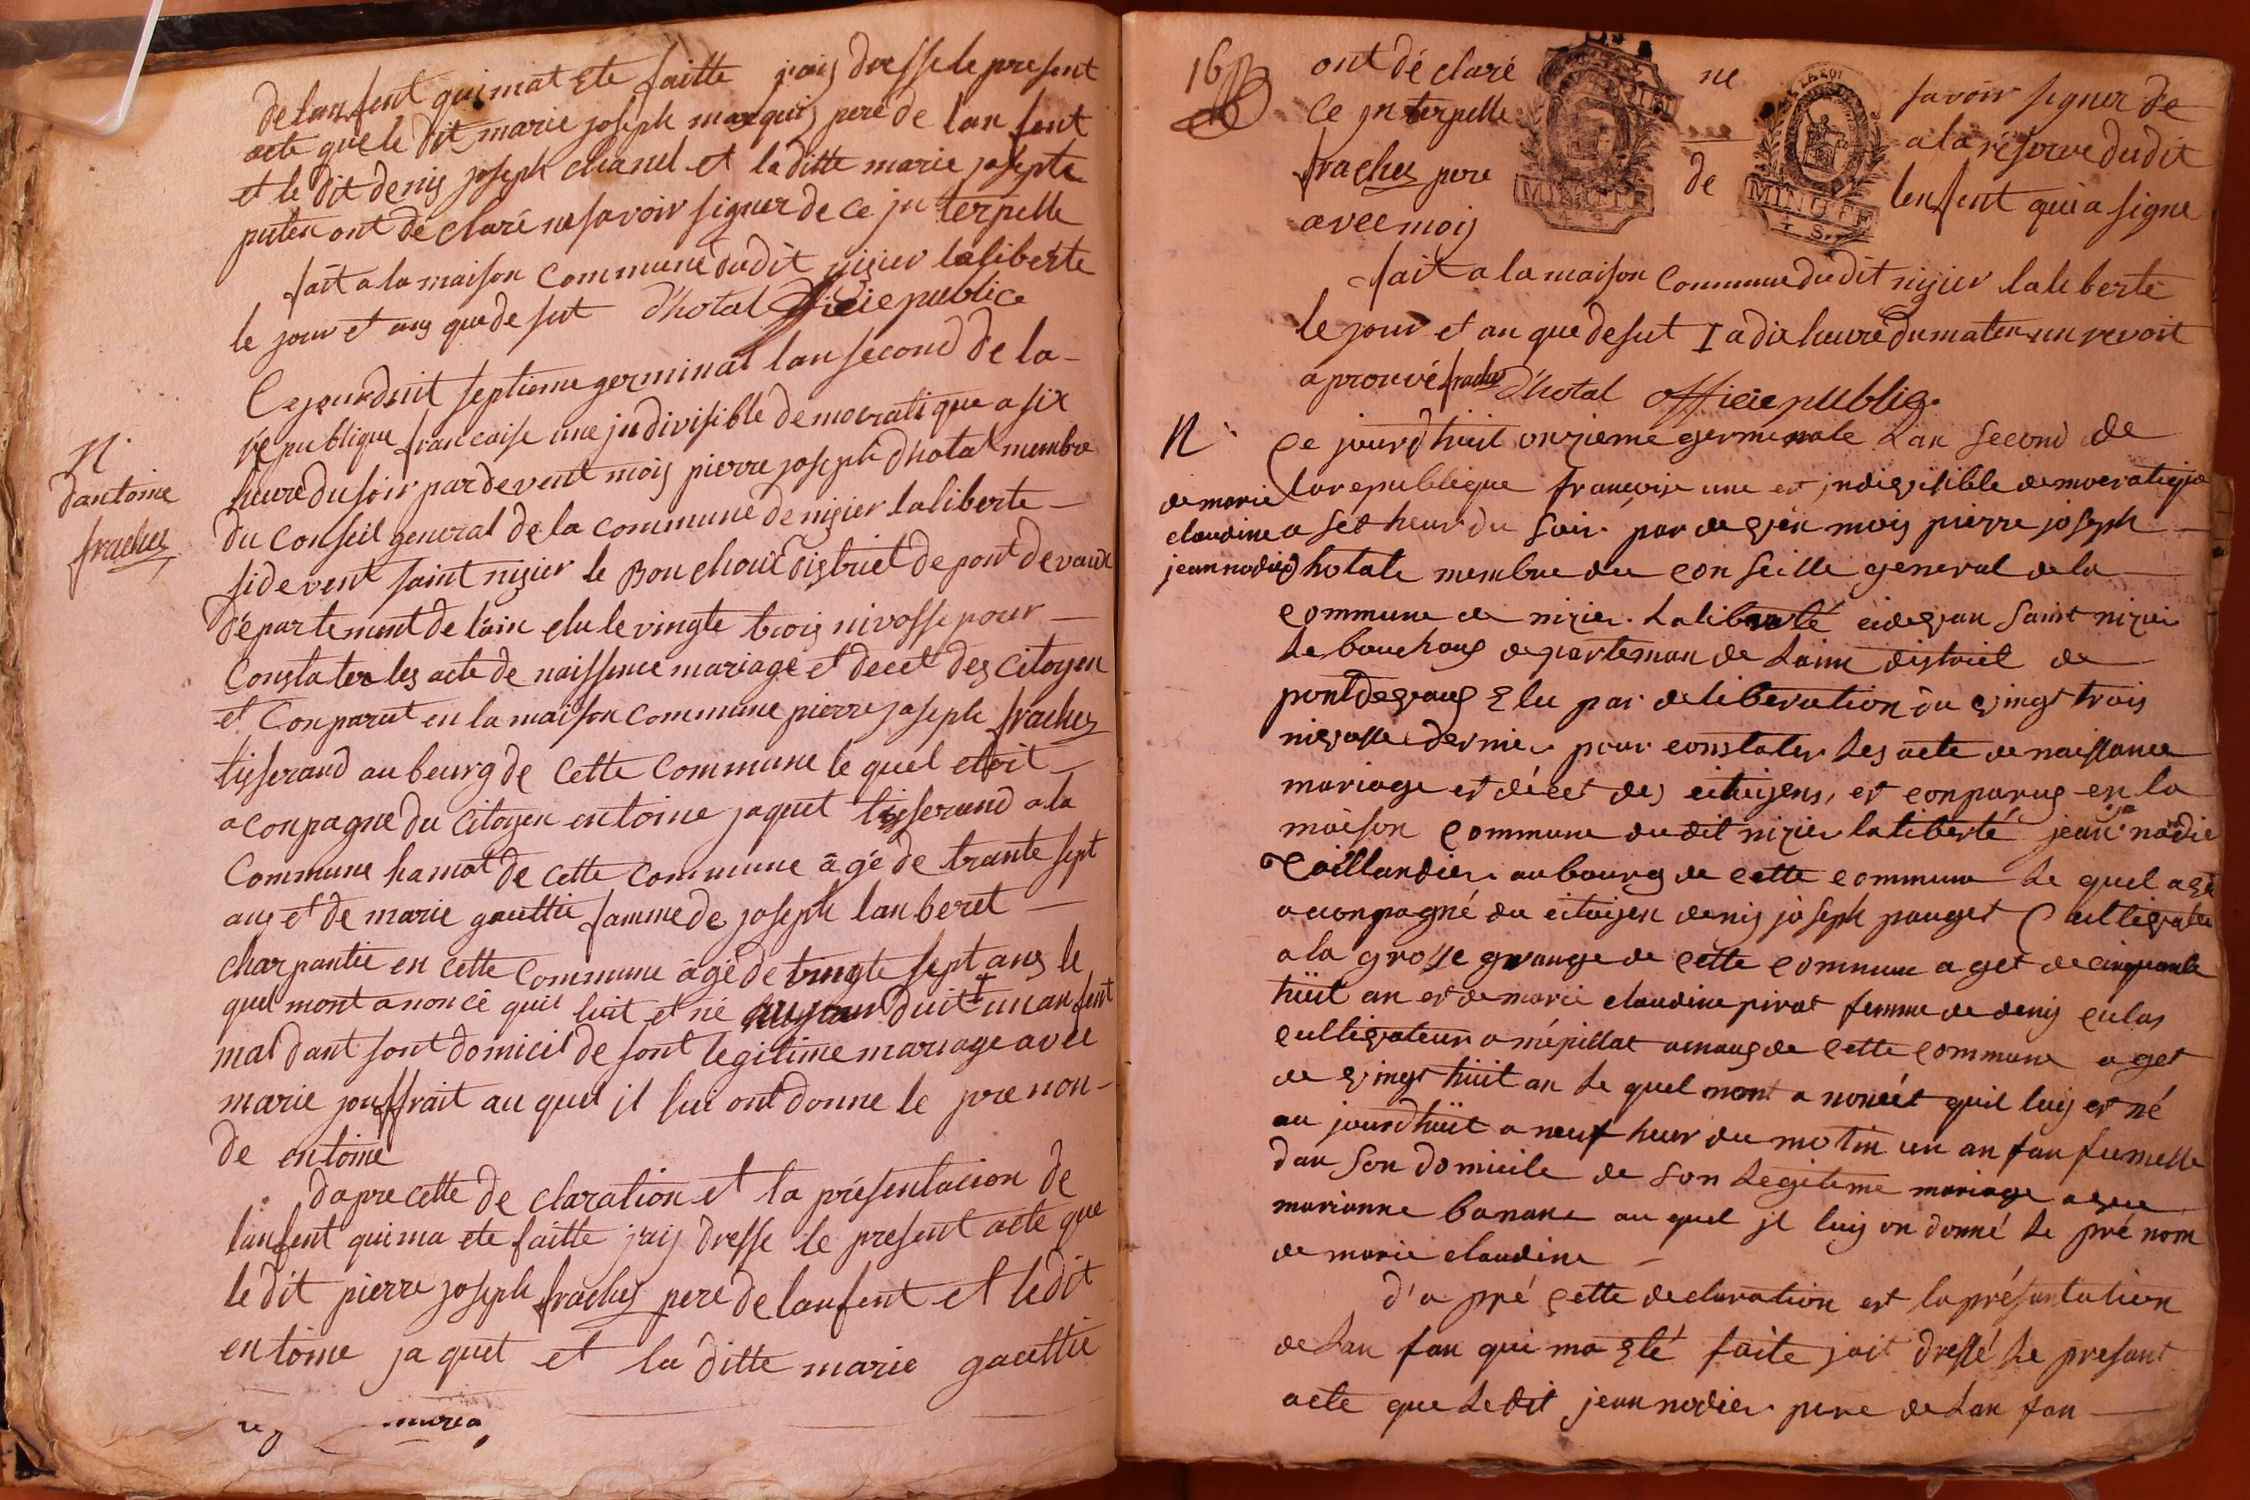 de lanfent quimat ete faitte jais dresse le present
acte que le dit marie joseph marquis pere de lanfent
et le dit denis joseph chanel et la ditte marie josepte
puten ont de claré ne savoir signer de ce jn terpelle
fait a la maison commune dudit nisier laliberte
le jour et ans que de sut d'hotal officie public
Ce jourduit septieme germinal lan second de la
republique francaise une jndivisible democratique a six
heure du soir pardevent mois pierre joseph dhotal membre
du Conseil general de la commune de nisier laliberte
sidevent saint nisier le Bouchout district de pont devaux
département de l'ain elu le vingte trois nivosse pour
Constater les acte de naissence mariage et decet des citoyen
et Conparut en la maison commune pierre joseph frachez
tisserand au beurg de cette commune le quel etoit
aconpagne du citoyen entoine jaquet tisserand a la
Commune hamat de cette commune âgé de trante sept
ans et de marie gauttie famme de joseph lanberet
charpantie en cette commune âgé de vingte sept ans le
quel mont anoncé quil luit et né aujourduit un anfent
mal dant sont domicil de sont legitime mariage avec
marie jouffrait au quel il lui ont donne le prenon
de entoine
dapre cette de claration et la présentacion de
lanfent quima ete faitte jais dresse le present acte que
le dit pierre joseph frachez pere de lanfent et ledit
entoine jaquet et la ditte marie gauttie
N.
dantoine
frachez
16
ont dé claré ne savoir signer de
ce jn terpelle a la réserve dudit
frachez pere de lenfent qui a signe
avec mois
MINUTE
MINUTE
fait a la maison commune dudit nisier laliberte
le jour et an que de sut I a dix heure du maten un revoit
aprouvé frachez d'hotal officie public
N
de marie
claudine
jean nodié
Ce jourdhuit onzieme germinale Lan second de
la republique francoise une et jndivisible democratique
a set heur du soir par devan mois pierre joseph
dhotale membre du conseille general de la
commune de nizier Laliberté cidevan saint nizier
Le bouchoug departeman de Lain district de
pontdevaug Elu par deliberation du vingt trois
nivosse dernier pour constater Les acte de naissance
mariage et décet des citoijens, et conparus en la
maison commune dudit nizier laliberté jean nodie
Taillandier au bourg de cette commune Le quel a été
aconpagné du citoijen denis joseph pauget Cultivater
a la grosse grange de cette commune aget de cinquante
huit an et de marie claudine pirat femme de denis culas
cultivateur a mépillat amaug de cette commune aget
de vingt huit an Le quel mont anoncét quil luij et né
au jourdhuit a neuf heur du matin un an fan fumelle
dan son domicile de son Legiteme mariage avec
marianne banane au quel jl luij on donné Le pré nom
de marie claudine
d'a pré cette declaration et la présantation
de Lan fan qui ma Eté faite jait dressé Le presant
acte que Ledit jean nodier pere de Lan fan